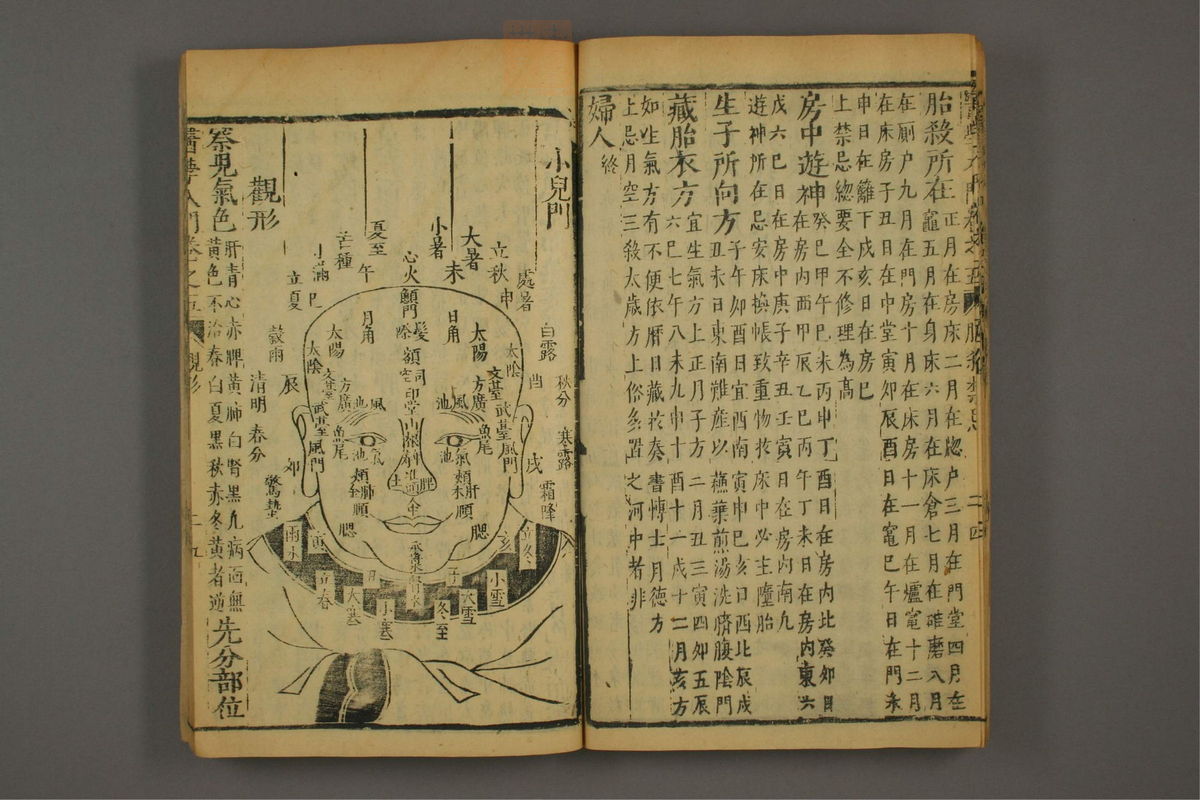 胎殺所在 正月在房床二月在窓户三月在門堂四月在
竈五月在身床六月在床倉七月在碓磨八月
在厠户九月在門房十月在床房十一月在爐竈十二月
在床房子丑日在中堂寅夘辰酉日在竈巳午日在門未
申日在籬下戌亥日在房巳
上禁忌緫要全不修理為高
房中遊神 癸巳甲午巳未丙申丁酉日在房内北癸夘日
在房内西甲辰乙巳丙午丁未日在房内東六
戊六巳日在房中庚子辛丑壬寅日在房内南九
遊神所在忌安床換帳致重物扵床中必主墮胎
生子所向方 子午夘酉日宜西南寅申巳亥日西北辰戌
丑未日東南難產以蘓葉煎湯洗臍腹陰門
藏胎衣方 宜生氣方上正月子方二月丑三寅四夘五辰
六巳七午八未九申十酉十一戌十二月亥方
如生氣方有不便依暦日藏扵奏書博士月德方
上忌月空三殺太歳方上俗多置之河中者非
婦人 終
二四
小兒門
處暑
立秋 申
大暑
未
小暑
夏至
午
芒種
小滿
巳
立夏
穀雨
辰
清明
春分
夘
驚蟄
雨水
寅
立春
大寒
小寒
冬至
子
大雪
小雪
亥
立冬
霜降
戌
寒露
秋分
白露
心火 顖門
髮際
額
印堂
日角
月角
太陽
太陽
太陰
太陰
文䑓
武䑓
武䑓
方廣
方廣
風池
風池
魚尾
魚尾
風門
風門
氣池
氣池
山根
準頭
頰
頰
肝木
肺金
脾土
腮
腮
觀形
察見氣色 肝青心赤脾黃肺白腎黑凢病面無
黃色不治春白夏黑秋赤冬黃者逆 先分部位
醫學入門卷之五
觀形
二五